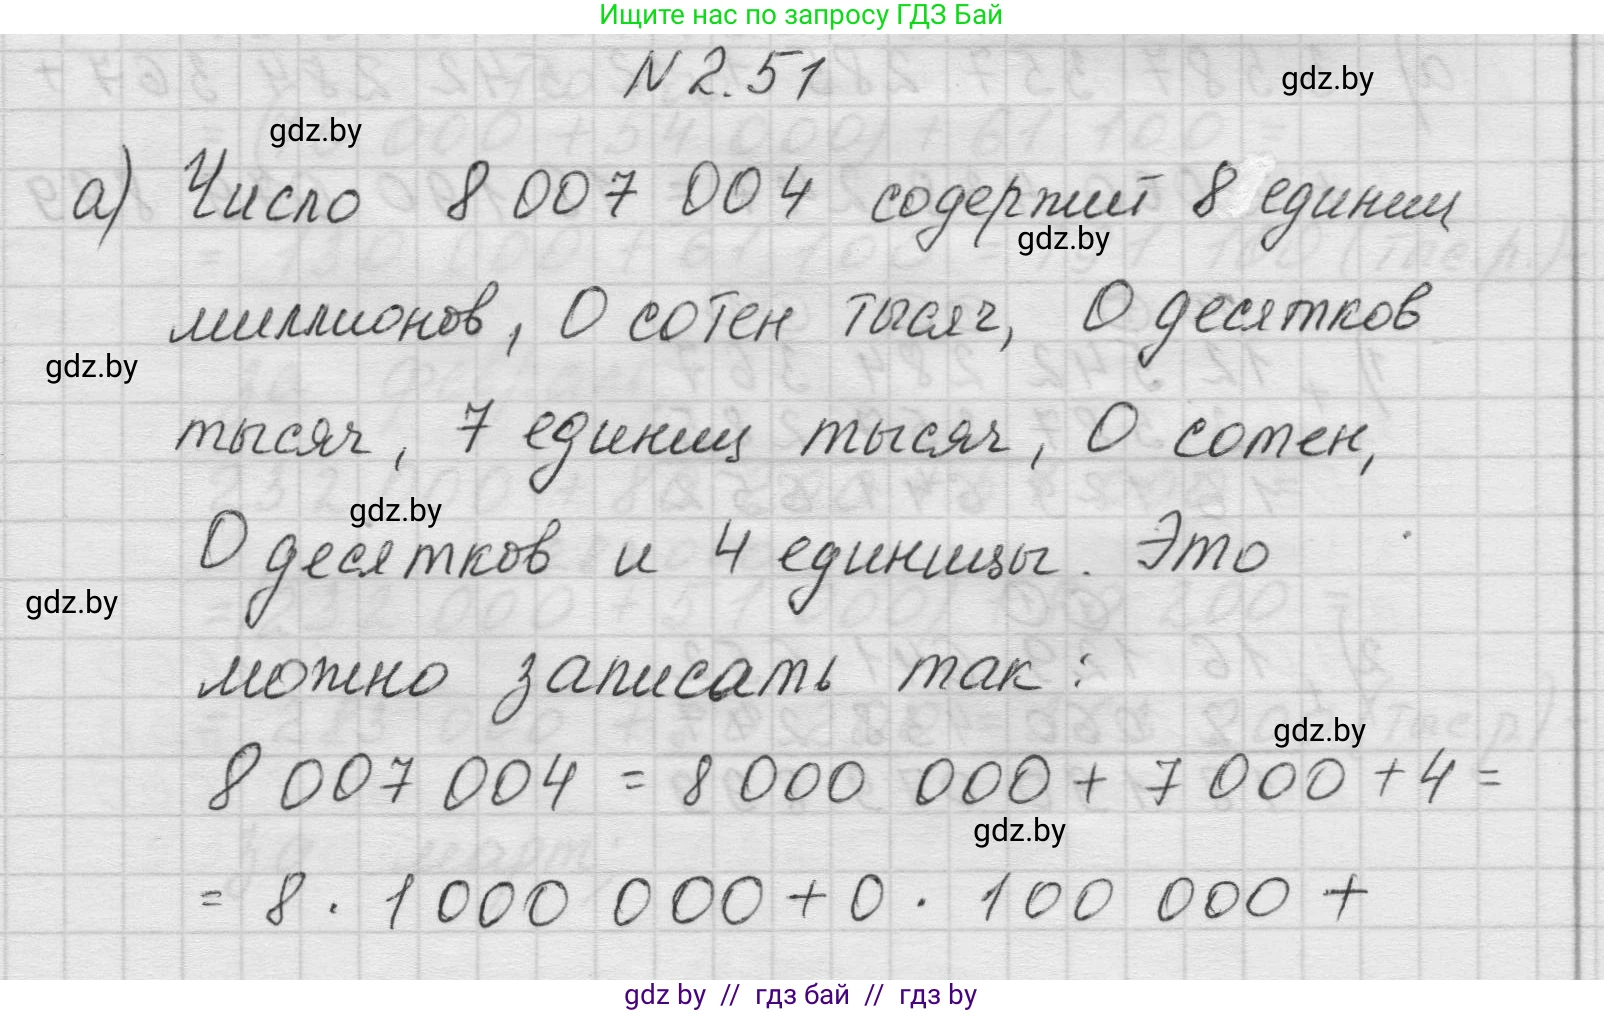 Ищите нас по запросу ГДЗ Бай
N 2.51
gdz.by
gdz.by
а) Число 8 007 004 содержит 8 единиц
gdz.by
миллионов, 0 сотен тысяч, 0 десятков
gdz.by
тысяч, 7 единиц тысяч, 0 сотен,
gdz.by
0 десятков и 4 единицы. Это
gdz.by
можно записать так:
gdz.by
8 007 004 = 8 000 000 + 7 000 + 4 =
gdz.by
= 8 · 1 000 000 + 0 · 100 000 +
gdz by // гдз бай // гдз by